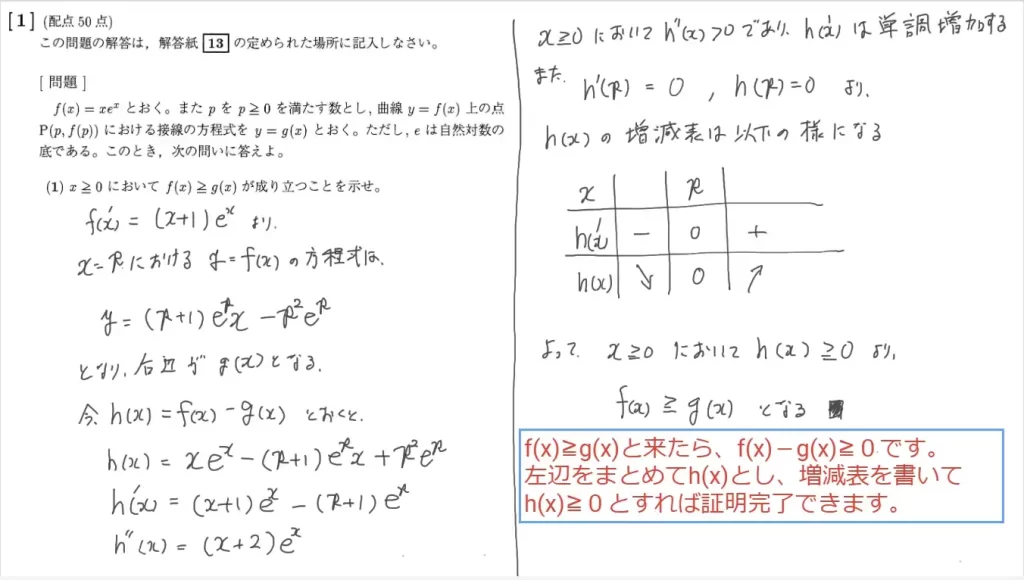 [1] (配点 50 点)
この問題の解答は，解答紙 13 の定められた場所に記入しなさい。
[ 問題 ]
f(x) = xeˣ とおく。また p を p ≧ 0 を満たす数とし, 曲線 y = f(x) 上の点
P(p, f(p)) における接線の方程式を y = g(x) とおく。ただし, e は自然対数の
底である。このとき，次の問いに答えよ。
(1) x ≧ 0 において f(x) ≧ g(x) が成り立つことを示せ。
f'(x) = (x+1)eˣ より、
x=pにおける y=f(x)の方程式は、
y = (p+1)eᵖx − p²eᵖ
となり、右辺が g(x)となる。
今 h(x) = f(x) − g(x) とおくと、
h(x) = xeˣ − (p+1)eᵖx + p²eᵖ
h'(x) = (x+1)eˣ − (p+1)eᵖ
h''(x) = (x+2)eˣ
x≧0 において h''(x)>0であり、h'(x)は単調増加する
また、
h'(p) = 0 , h(p)=0 より、
h(x)の増減表は以下の様になる
x p
h'(x) − 0 +
h(x) ↘ 0 ↗
よって、x≧0 において h(x) ≧0 より、
f(x) ≧ g(x) となる
f(x)≧g(x)と来たら、f(x)－g(x)≧０です。
左辺をまとめてh(x)とし、増減表を書いて
h(x)≧０とすれば証明完了できます。